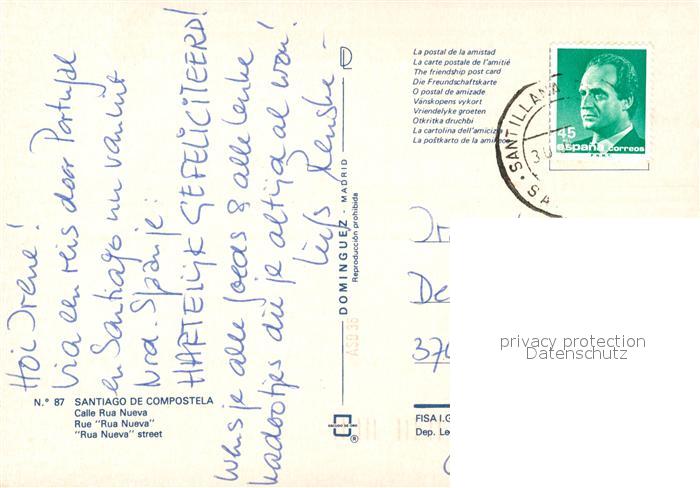 Hoi Irene!
Via een reis door Portugal
en Santiago nu vanuit
Nrd. Spanje:
HARTELIJK GEFELICITEERD!
Wens je alle goeds & alle leuke
kadootjes die je altijd al won!
Liefs Renske –
N.° 87 SANTIAGO DE COMPOSTELA
Calle Rua Nueva
Rue "Rua Nueva"
"Rua Nueva" street
DOMINGUEZ - MADRID
Reproducción prohibida
ASB 36
ESCUDO DE ORO
®
La postal de la amistad
La carte postale de l'amitié
The friendship post card
Die Freundschaftskarte
O postal de amizade
Vänskopens vykort
Vriendelyke groeten
Otkritka druchbi
La cartolina dell'amicizia
La postkarto de la
SANTILLANA
45
españa correos
F.N.M.T.
De
370
FISA I.G
Dep. Le
privacy protection
Datenschutz